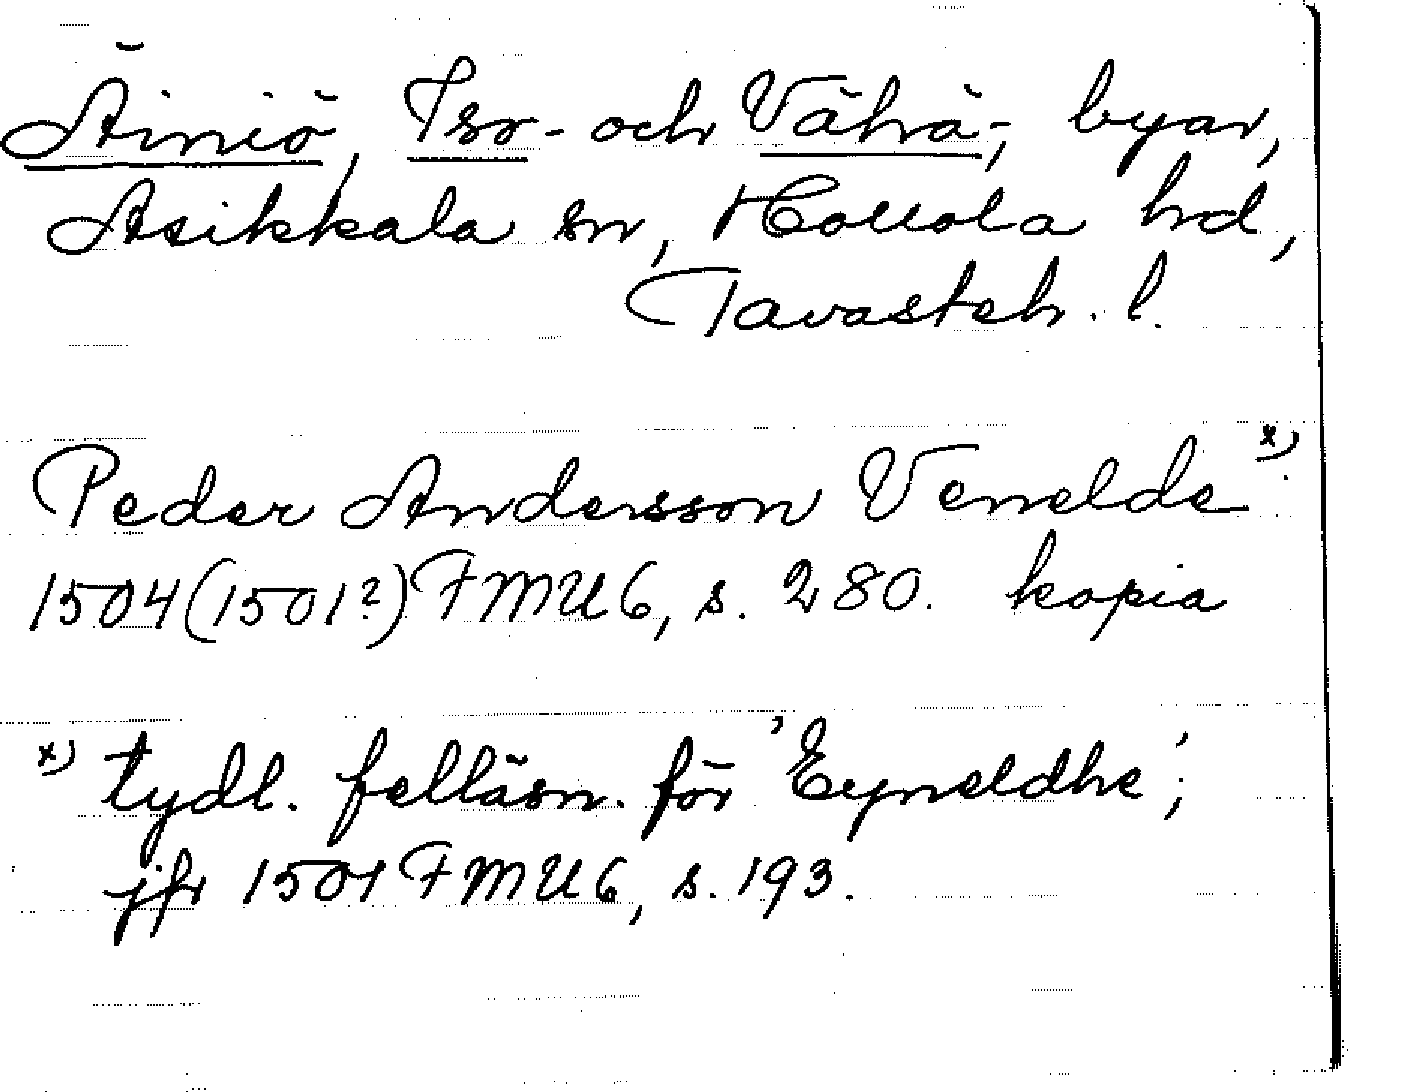 Äiniö, Iso- och Vähä-, byar,
Asikkala sn, Hollola hd,
Tavasteh. l.
Peder Andersson Venelde x).
1504 (1501?) FMU 6, s. 280. kopia
x) tydl. felläsn. för 'Eyneldhe';
jfr 1501 FMU 6, s. 193.